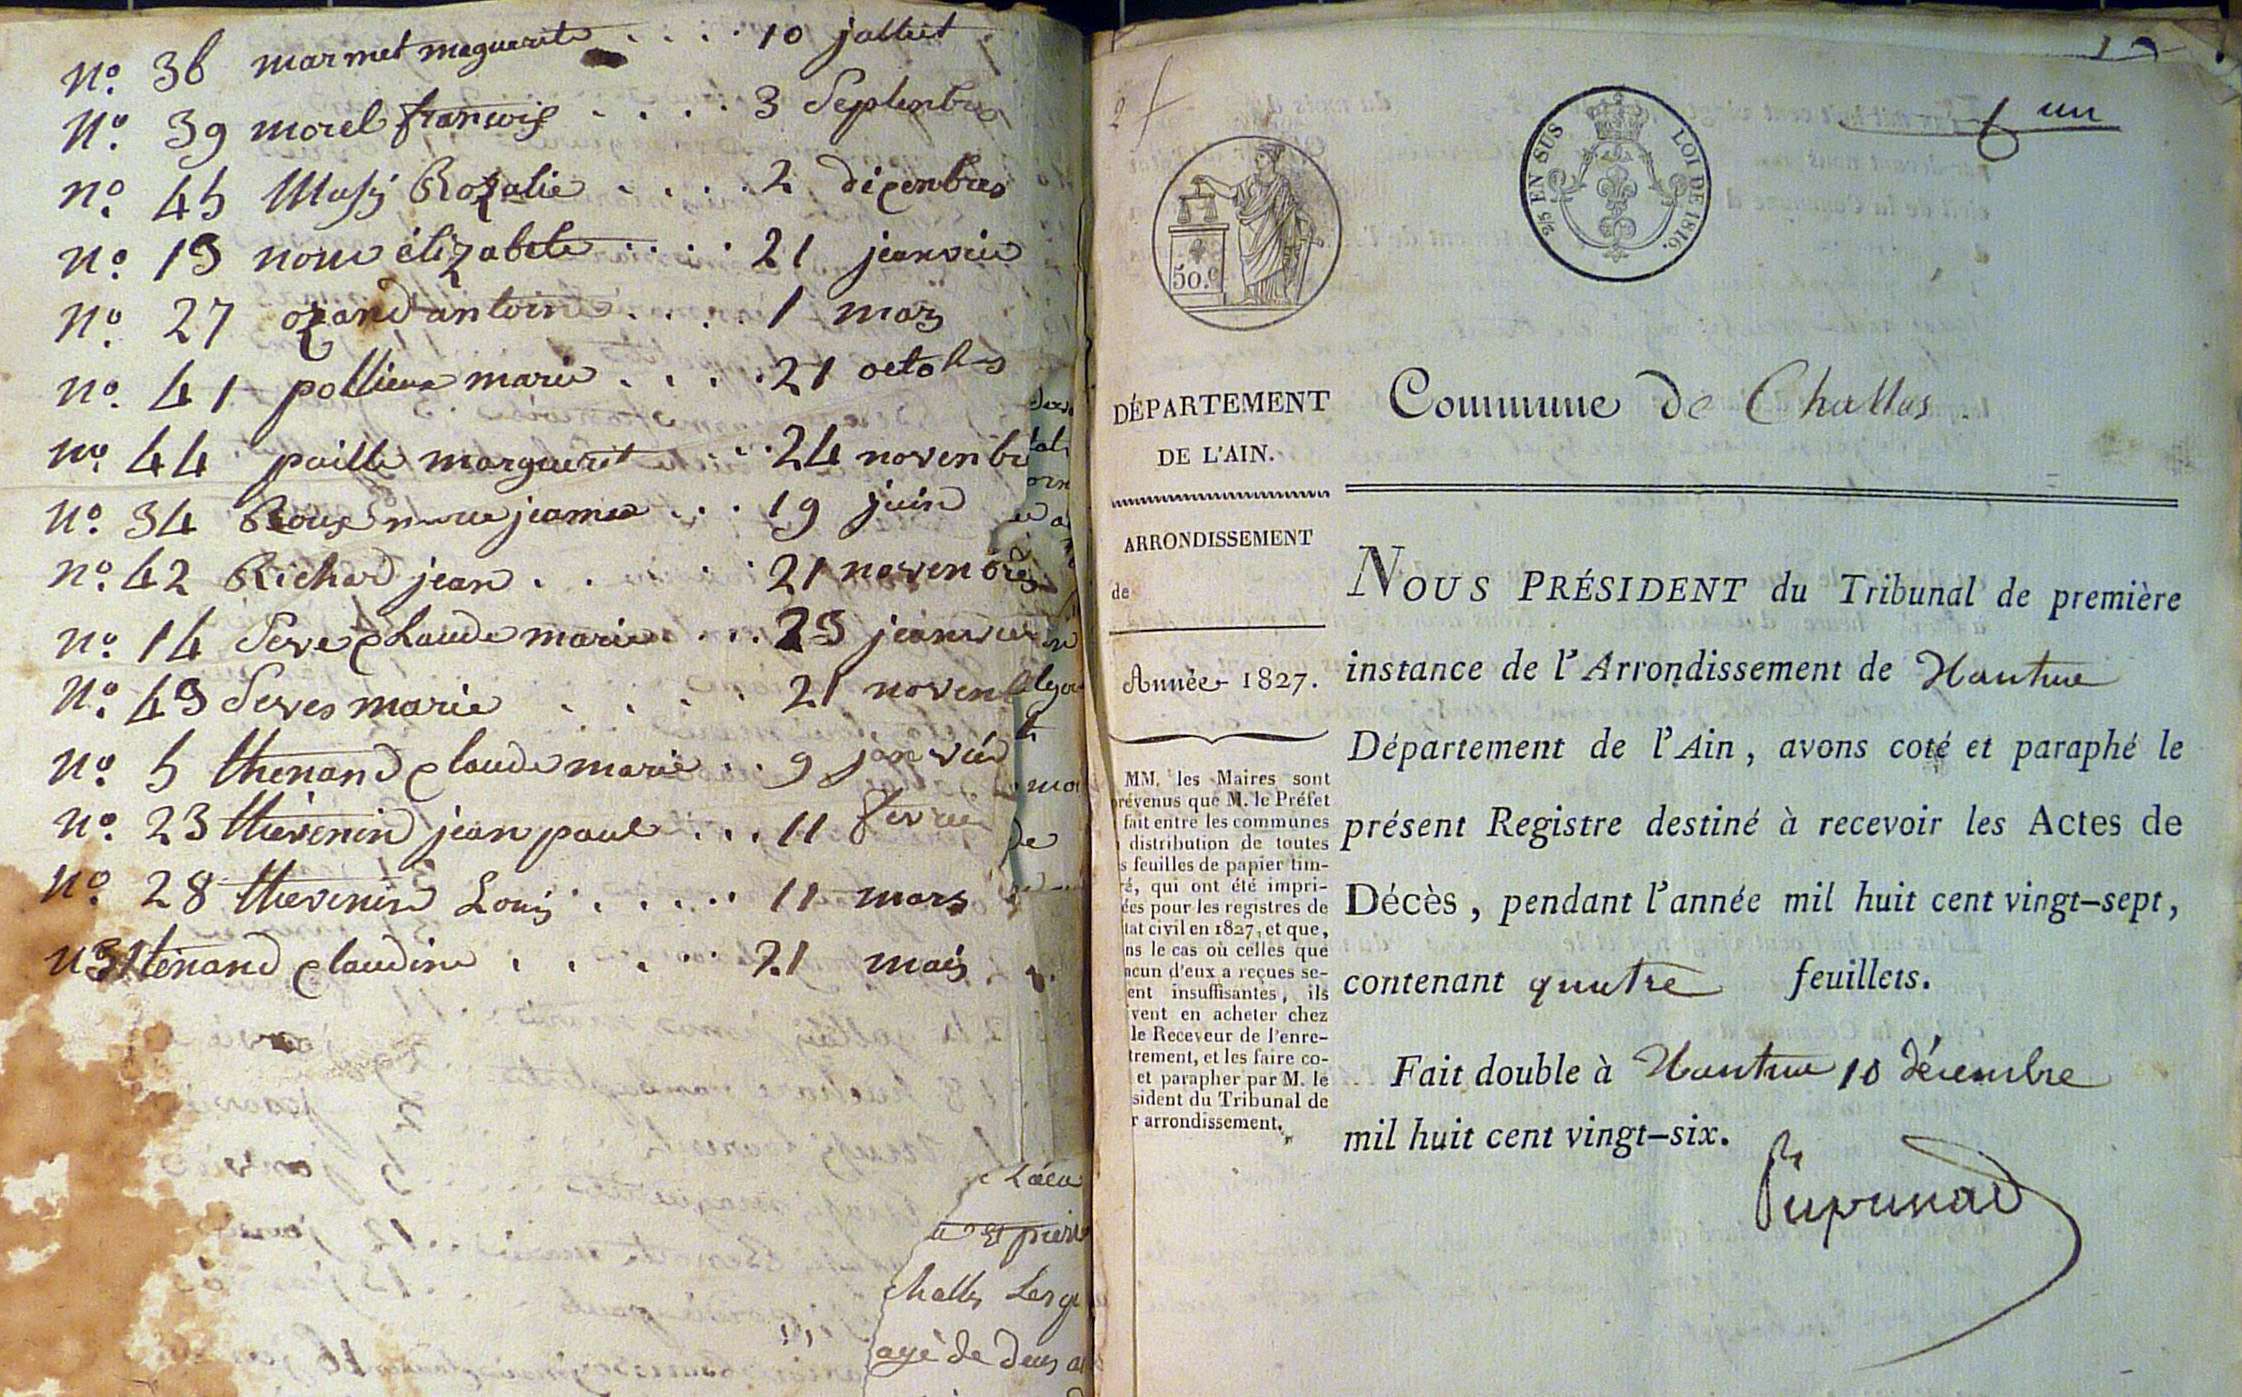 no. 36 marmet maguerite . . . . 10 jullit
no. 39 morel françois . . . . 3 Septenbres
no. 45 Massy Rozalie . . . . 2 dicenbres
no. 13 élizabete . . . . 21 jeanvier
no. 27 ozand antoine . . . . 1 mars
no. 41 pollieux marie . . . . 21 octobres
no. 44 paille margueret . . . 24 novenbre
no. 34 Roux marie jeanne . . . 19 juin
no. 42 Richard jean . . . . 21 novenbres
no. 14 Seve Claude marie . . . 23 jeanvier
no. 43 Seves marie . . . . 21 novenb
no. 5 thenand claude marie . . 9 janvier
no. 23 thévenin jean paul . . . 11 fevrie
no. 28 thevenin Louis . . . . . 11 mars
n 31 tenand claudine . . . . . 21 mars
challes
agé de deux a
2
1
un
50.c
2/5 EN SUS LOI DE 1816.
DÉPARTEMENT
DE L'AIN.
ARRONDISSEMENT
de
Année 1827.
MM. les Maires sont
prévenus que M. le Préfet
fait entre les communes
distribution de toutes
s feuilles de papier tim-
ré, qui ont été impri-
ées pour les registres de
tat civil en 1827, et que,
ns le cas où celles que
acun d'eux a reçues se-
ent insuffisantes, ils
vent en acheter chez
le Receveur de l'enre-
trement, et les faire co-
et parapher par M. le
sident du Tribunal de
r arrondissement.
Commune de Challes.
NOUS PRÉSIDENT du Tribunal de première
instance de l'Arrondissement de Nantua
Département de l'Ain, avons coté et paraphé le
présent Registre destiné à recevoir les Actes de
Décès, pendant l'année mil huit cent vingt-sept,
contenant quatre feuillets.
Fait double à Nantua 10 décembre
mil huit cent vingt-six.